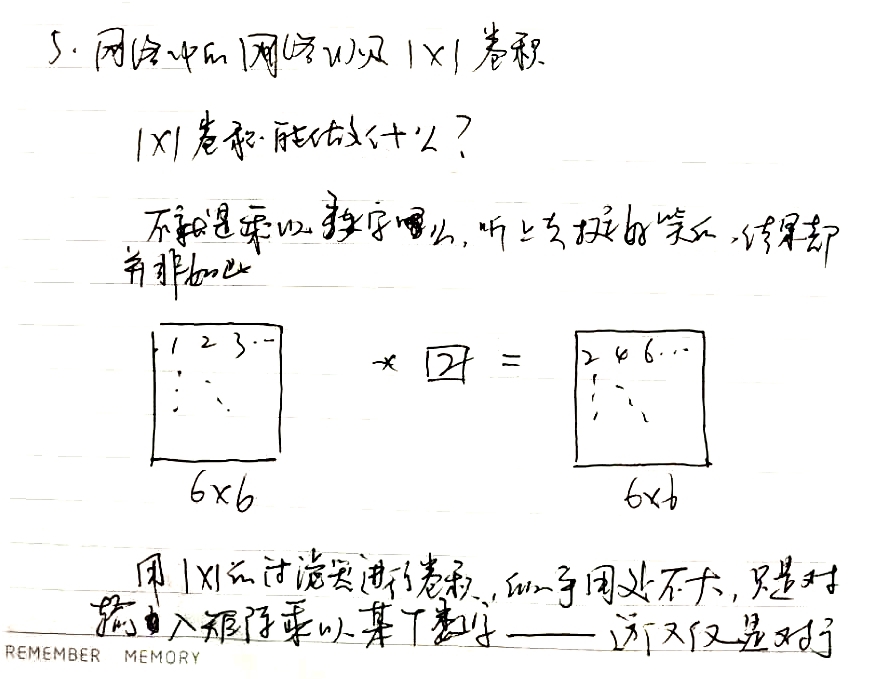 5. 网络中的网络以及 1×1 卷积
1×1 卷积能做什么?
不就是乘以数字么,听上去挺好笑的,结果却
并非如此
1 2 3 ...
* 2 =
2 4 6 ...
6×6
6×6
用 1×1 的过滤器进行卷积,似乎用处不大,只是对
输入矩阵乘以某个数字——这仅仅是对于
REMEMBER MEMORY